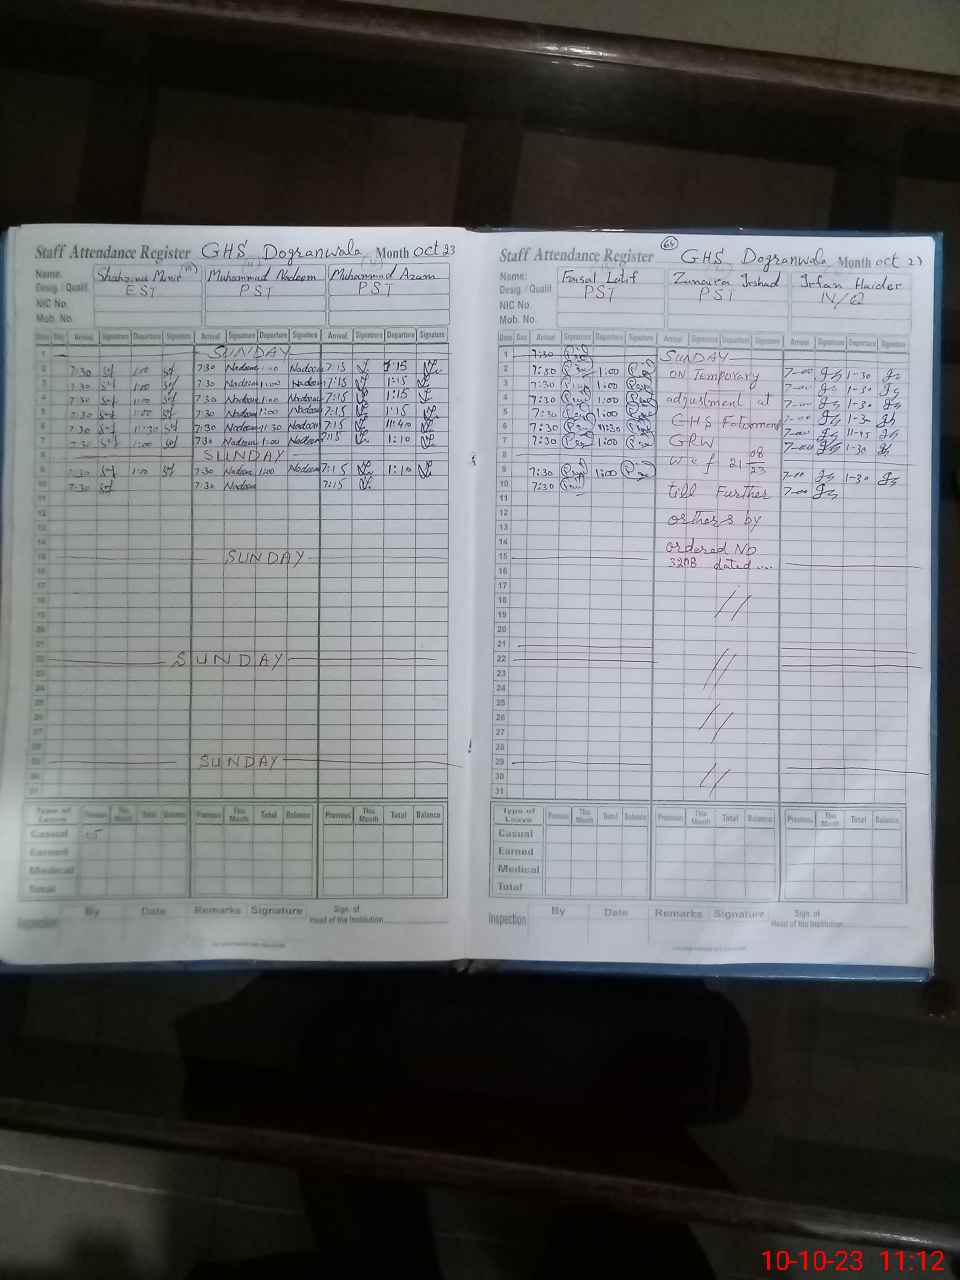 Staff Attendance Register GHS Dogranwala Month Oct 23
Name. Muhammad Nadeem Muhammad Azam
Desig. / Qualif. EST PST PST
NIC No.
Mob. No.
Arrival Signature Departure Signature Arrival Signature Departure Signature Arrival Signature Departure Signature
1 SUNDAY
2 7:30 1:00 7:30 Nadeem 1:00 Nadeem 7:15 1:15
3 7:30 1:00 7:30 Nadeem 1:00 Nadeem 7:15 1:15
4 7:30 1:00 7:30 Nadeem 1:00 Nadeem 7:15 1:15
5 7:30 1:00 7:30 Nadeem 1:00 Nadeem 7:15 1:15
6 7:30 11:30 7:30 Nadeem 11:30 Nadeem 7:15 11:40
7 7:30 1:00 7:30 Nadeem 1:00 Nadeem 7:15 1:10
8 SUNDAY
9 7:30 1:00 7:30 Nadeem 1:00 Nadeem 7:15 1:10
10 7:30 7:30 Nadeem 7:15
11
12
13
14
15 SUNDAY
16
17
18
19
20
21
22 SUNDAY
23
24
25
26
27
28
29 SUNDAY
30
31
Type of Leave Previous This Month Total Balance Previous This Month Total Balance Previous This Month Total Balance
Casual
Earned
Medical
Total
Inspection By Date Remarks Signature Sign. of Head of the Institution
64
Staff Attendance Register GHS Dogranwala Month Oct 23
Name: Faisal Latif Irfan Haider
Desig. / Qualif PST PST N/Q
NIC No.
Mob. No.
Date Day Arrival Signature Departure Signature Arrival Signature Departure Signature Arrival Signature Departure Signature
1 7:30 SUNDAY
2 7:30 1:00 ON Temporary 7-00 1-30
3 7:30 1:00 7-00 1-30
4 7:30 1:00 adjustment at 7-00 1-30
5 7:30 1:00 GHS 7-00 1-30
6 7:30 11:30 GRW 7-00 11-45
7 7:30 1:00 7-00 1-30
8 w e f 21 08 23
9 7:30 1:00 7-00 1-30
10 7:30 till Further 7-00
11
12 by
13
14 ordered No
15 dated ....
16
17
18 //
19
20
21
22 //
23
24
25
26 //
27
28
29
30 //
31
Type of Leave Previous This Month Total Balance Previous This Month Total Balance Previous This Month Total Balance
Casual
Earned
Medical
Total
Inspection By Date Remarks Signature Sign. of Head of the Institution
10-10-23 11:12